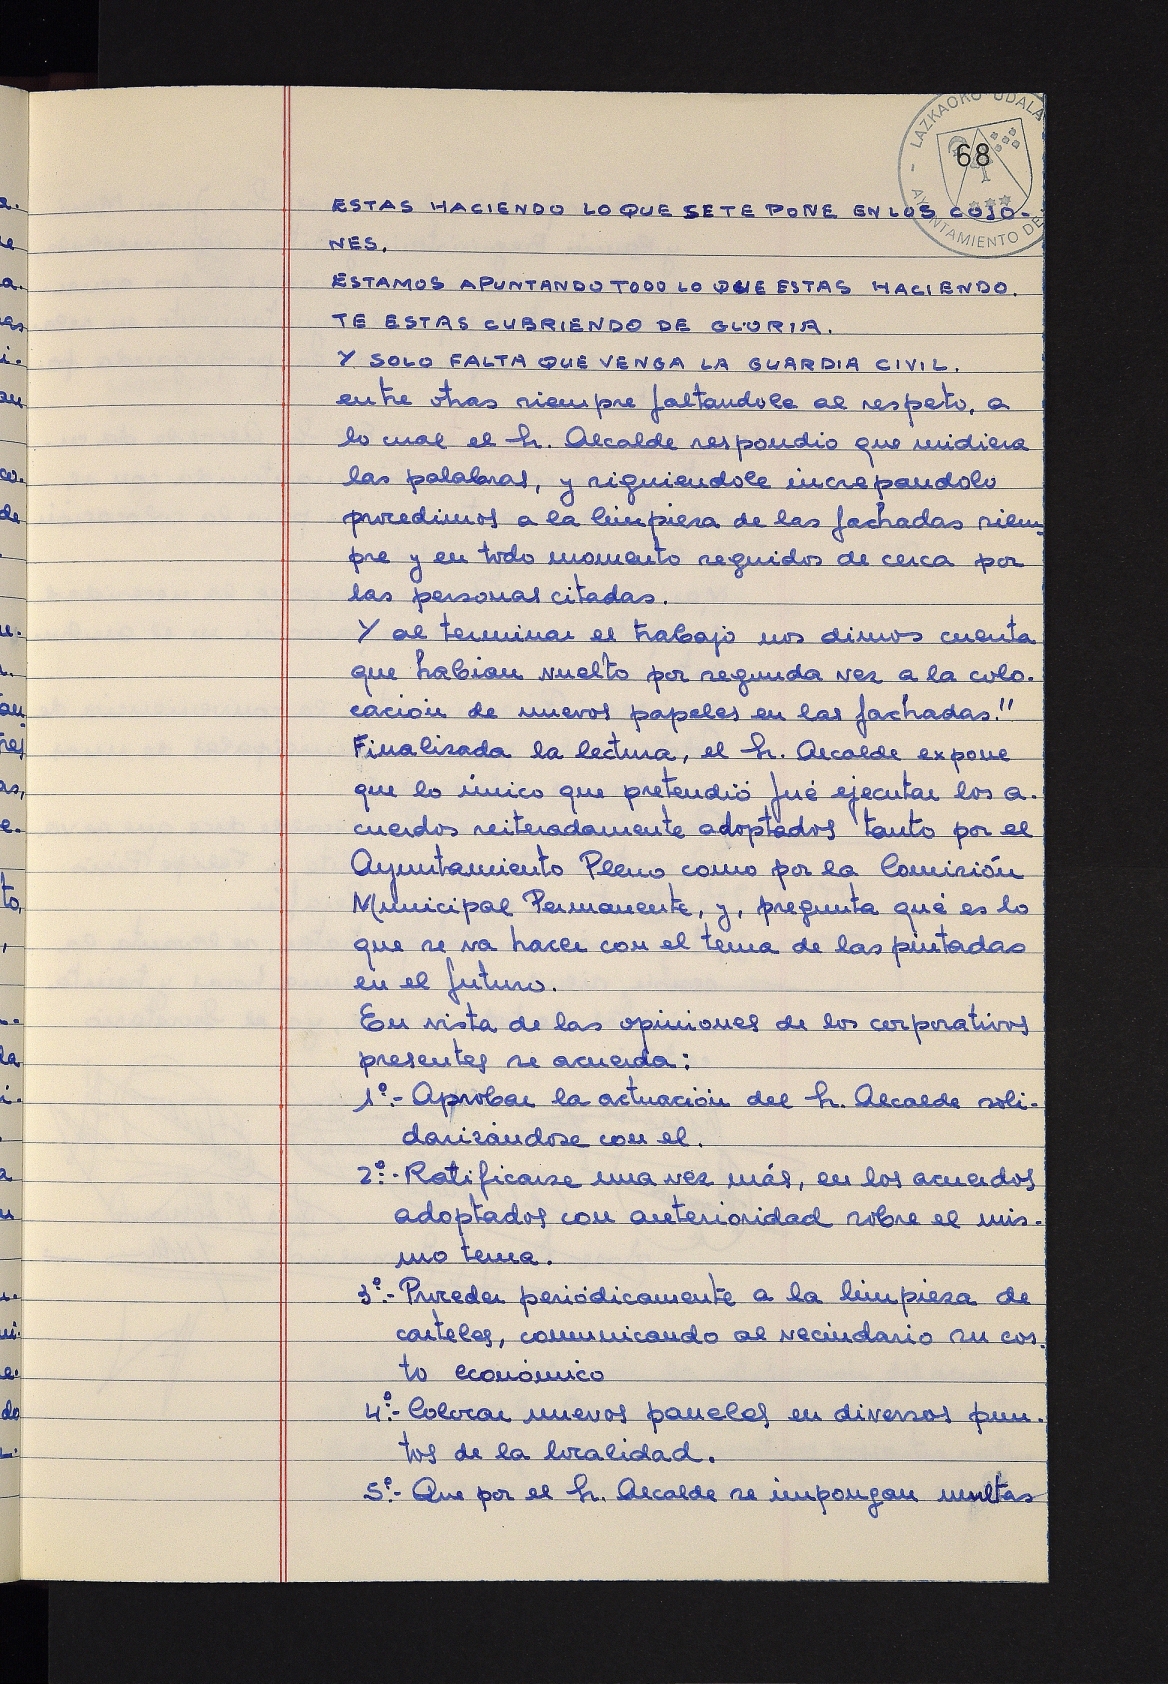 LAZKAOKO UDALA
68
AYUNTAMIENTO DE
ESTAS HACIENDO LO QUE SETE PONE EN LOS COJO-
NES.
ESTAMOS APUNTANDO TODO LO QUE ESTAS HACIENDO.
TE ESTAS CUBRIENDO DE GLORIA.
Y SOLO FALTA QUE VENGA LA GUARDIA CIVIL.
entre otras siempre faltandole al respeto, a
lo cual el Sr. Alcalde respondio que midiera
las palabras, y siguiendole increpandolo
procedimos a la limpieza de las fachadas siem-
pre y en todo momento seguidos de cerca por
las personas citadas.
Y al terminar el trabajo nos dimos cuenta
que habian vuelto por segunda vez a la colo-
cación de nuevos papeles en las fachadas."
Finalizada la lectura, el Sr. Alcalde expone
que lo único que pretendió fué ejecutar los a-
cuerdos reiteradamente adoptados tanto por el
Ayuntamiento Pleno como por la Comisión
Municipal Permanente, y, pregunta qué es lo
que se va hacer con el tema de las pintadas
en el futuro.
En vista de las opiniones de los corporativos
presentes se acuerda:
1º.- Aprobar la actuación del Sr. Alcalde soli-
darizándose con el.
2º.- Ratificarse una vez más, en los acuerdos
adoptados con anterioridad sobre el mis-
mo tema.
3º.- Proceder periódicamente a la limpieza de
carteles, comunicando al vecindario su cos-
to económico
4º.- Colocar nuevos paneles en diversos pun-
tos de la localidad.
5º.- Que por el Sr. Alcalde se impongan multas